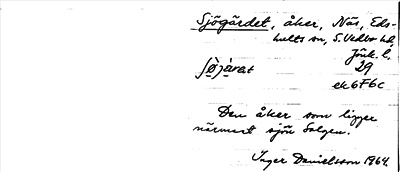 Sjögärdet, åker, Näs, Eds-
hults sn, S. Vedbo hd,
Jönk. l.
29
ek6F6c
Den åker som ligger
närmast sjön Solgen.
Inger Danielsson 1964.